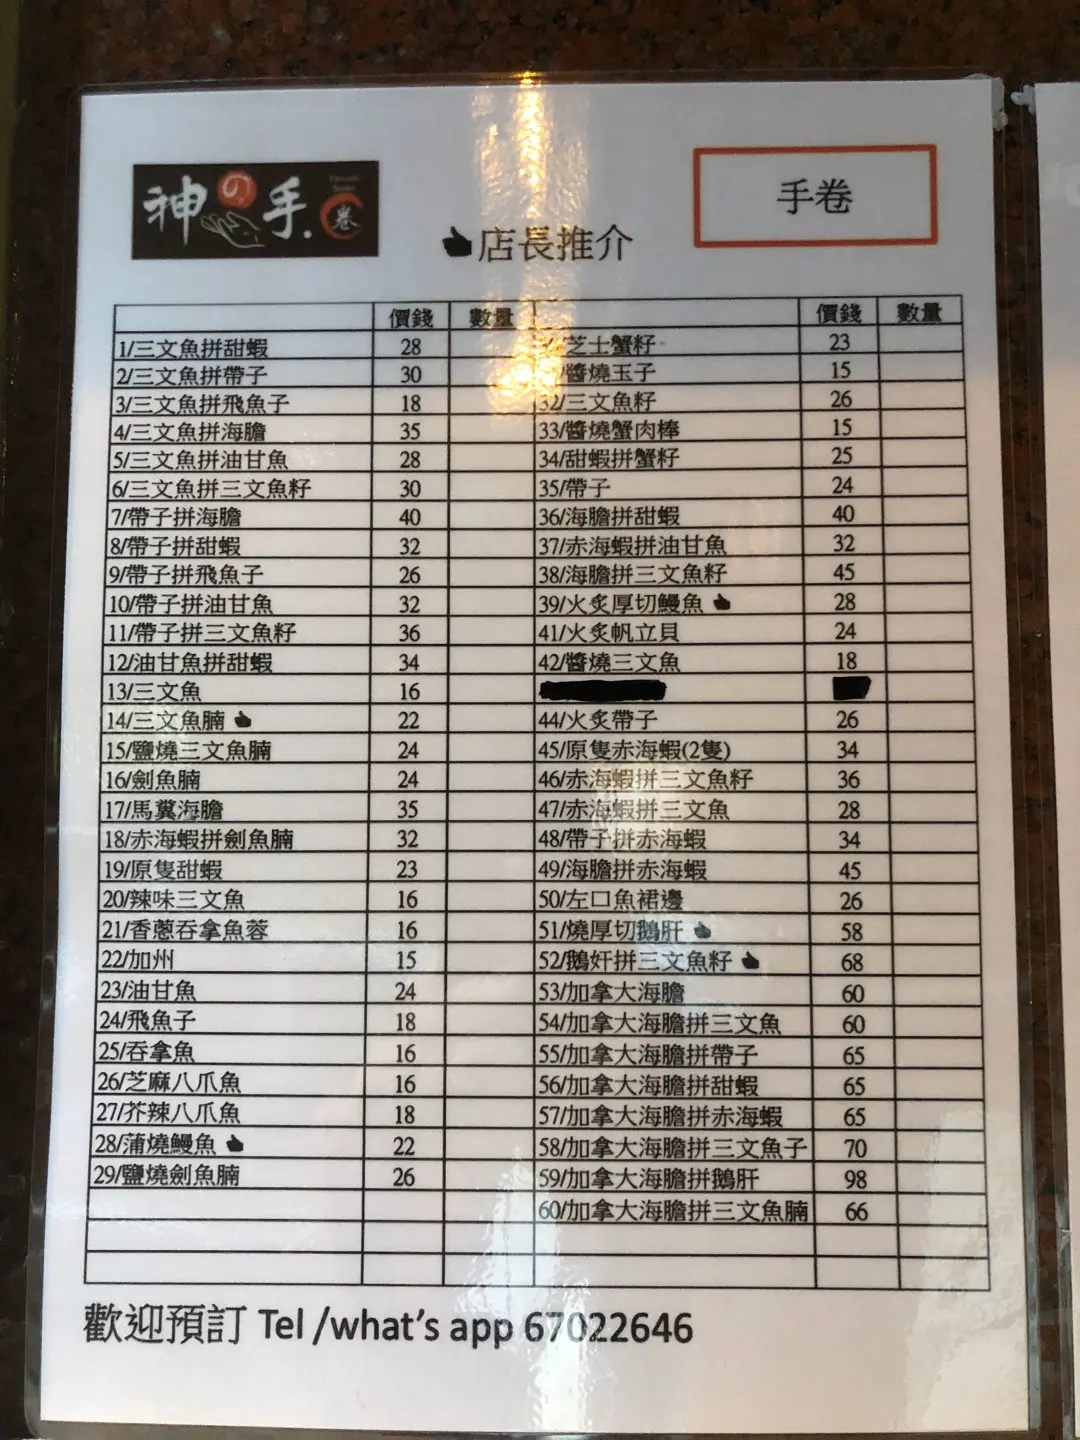 神の手.卷
手卷
店長推介
價錢 數量 價錢 數量
1/三文魚拼甜蝦 28
2/三文魚拼帶子 30
3/三文魚拼飛魚子 18
4/三文魚拼海膽 35
5/三文魚拼油甘魚 28
6/三文魚拼三文魚籽 30
7/帶子拼海膽 40
8/帶子拼甜蝦 32
9/帶子拼飛魚子 26
10/帶子拼油甘魚 32
11/帶子拼三文魚籽 36
12/油甘魚拼甜蝦 34
13/三文魚 16
14/三文魚腩 22
15/鹽燒三文魚腩 24
16/劍魚腩 24
17/馬糞海膽 35
18/赤海蝦拼劍魚腩 32
19/原隻甜蝦 23
20/辣味三文魚 16
21/香蔥吞拿魚蓉 16
22/加州 15
23/油甘魚 24
24/飛魚子 18
25/吞拿魚 16
26/芝麻八爪魚 16
27/芥辣八爪魚 18
28/蒲燒鰻魚 22
29/鹽燒劍魚腩 26
芝士蟹籽 23
/醬燒玉子 15
32/三文魚籽 26
33/醬燒蟹肉棒 15
34/甜蝦拼蟹籽 25
35/帶子 24
36/海膽拼甜蝦 40
37/赤海蝦拼油甘魚 32
38/海膽拼三文魚籽 45
39/火炙厚切鰻魚 28
41/火炙帆立貝 24
42/醬燒三文魚 18
44/火炙帶子 26
45/原隻赤海蝦(2隻) 34
46/赤海蝦拼三文魚籽 36
47/赤海蝦拼三文魚 28
48/帶子拼赤海蝦 34
49/海膽拼赤海蝦 45
50/左口魚裙邊 26
51/燒厚切鵝肝 58
52/鵝奸拼三文魚籽 68
53/加拿大海膽 60
54/加拿大海膽拼三文魚 60
55/加拿大海膽拼帶子 65
56/加拿大海膽拼甜蝦 65
57/加拿大海膽拼赤海蝦 65
58/加拿大海膽拼三文魚子 70
59/加拿大海膽拼鵝肝 98
60/加拿大海膽拼三文魚腩 66
歡迎預訂 Tel /what's app 67022646